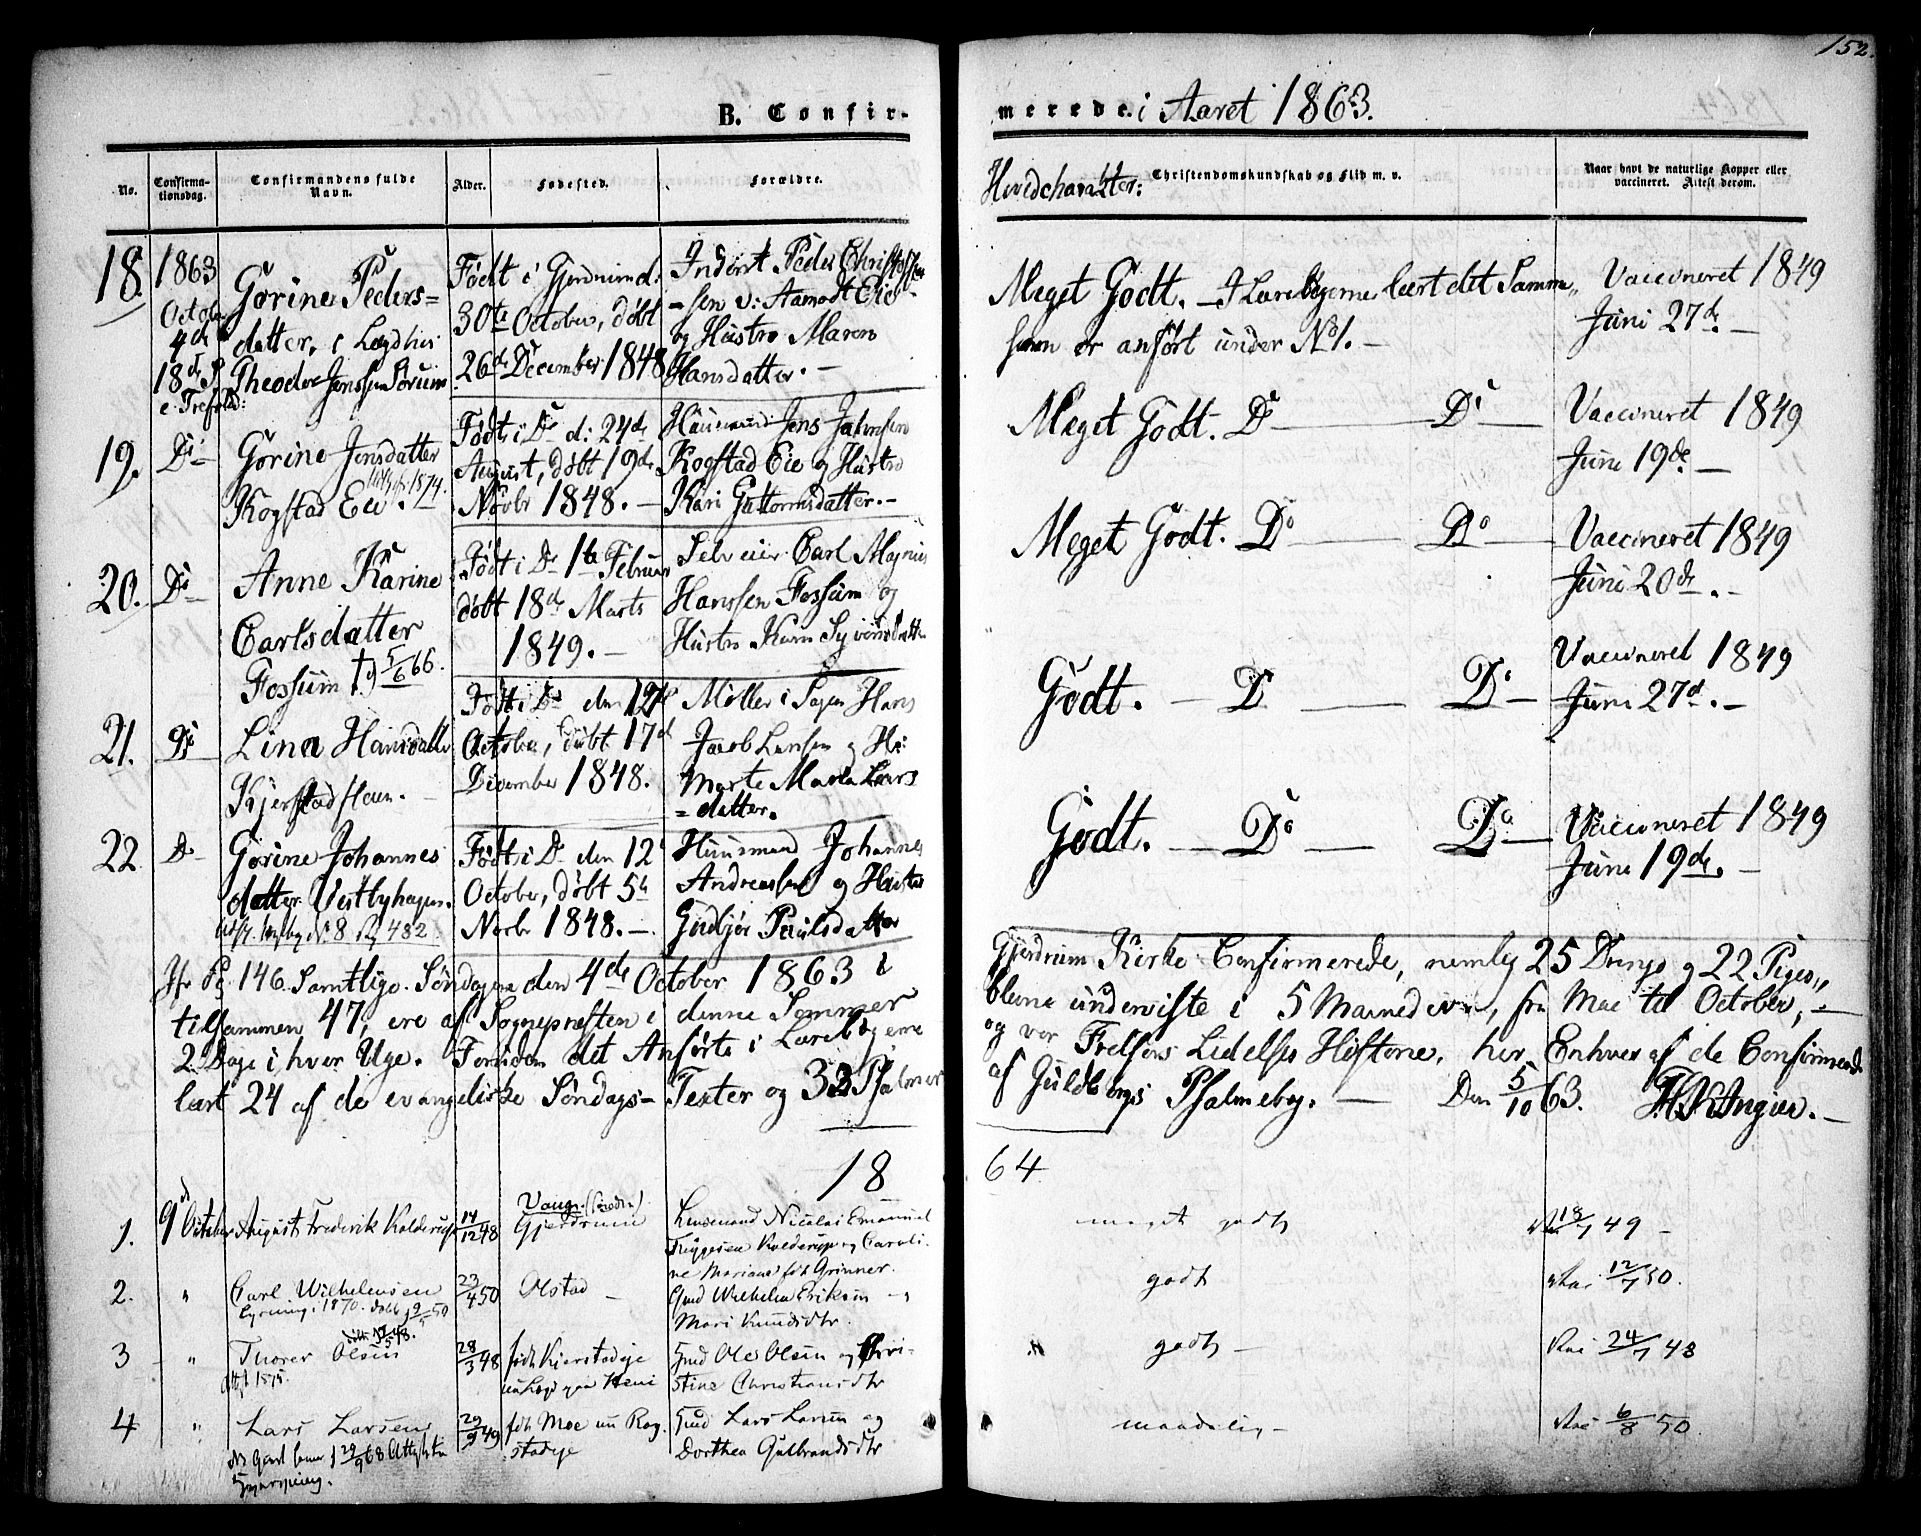 152.
B. Confir-
merede. i Aaret 1863.
No.
Confirma-
tionsdag.
Confirmandens fulde
Navn.
Alder.
Fødested.
Forældre.
Hovedcharakter:
Christendomskundskab og Flid m. v.
Naar havt de naturlige Kopper eller
vaccineret. Attest derom.
18.
1863
October
4de
18de S.
e. Trefold:
Gørine Peders=
datter, i Lægd hus
Theodor Jenssen Sørum
Født i Gjerdrum d:
30te October, døbt
26de December 1848
Inderst Peder Christoffer
=sen v: Aamodt Eie
og Hustro Maren
Hansdatter. —
Meget Godt. — I Lærebøgerne lært det Samme,,
som er anført under No 1. —
Vaccineret 1849
Juni 27de. —
19.
Do
Gørine Jensdatter
Kogstad Eie. 1874.
Født i Do d: 24de
August, døbt 19de
Novbr 1848. —
Huusmand Jens Johnsen
Kogstad Eie og Hustro
Kari Guttormsdatter. —
Meget Godt. Do — Do —
Vaccineret 1849
Juni 19de. —
20.
Do
Anne Karine
Carlsdatter
Fossum † 5/6 66.
Født i Do 1te Februar
døbt 18de Marts
1849. —
Selveier Carl Magnus
Hanssen Fossum og
Hustro Karn Syversdatter
Meget Godt. Do — Do —
Vaccineret 1849
Juni 20de. —
21.
Do
Lina Hansdatter
Kjerstad
Født i Do den 12te
October, døbt 17de
December 1848.
Møller i Sagen Hans
Jacob Larssen og Hu:
Marte Maria Lars
=datter.
Godt. — Do — Do —
Vaccineret 1849
Juni 27de. —
22
Do
Gørine Johannes
datter Vestbyhagen.
No 8 Pg 482
Født i Do den 12te
October, døbt 5te
Novbr 1848. —
Huusmand Johannes
Andreassen og Hustro
Gudbjør Paulsdatter
Godt. — Do — Do —
Vaccineret 1849
Juni 19de. —
Jfr Pg. 146. Samtlige Søndagen den 4de October 1863 i
Gjerdrum Kirke Confirmerede, nemlig 25 Drenge og 22 Piger,,
tilsammen 47, ere af Sognepresten i denne Sommer
blevne underviste i 5 Maaneder, fra Mai til October, —
2 Dage i hver Uge. Foruden det Anførte i Lærebøgerne
og vor Frelsers Lidelses Historie, har Enhver af de Confirmerede
lært 24 af de evangeliske Søndags-Texter og 33 Psalmer
af Guldbergs Psalmebog. — Den 5/10 63. Angier. —
18
64
1.
9de October
August Frederik Kolderup
14/12 48
Gjerdrum
Lensmand Nicolai Emanuel
Trygesen Kolderup og Caroli-
ne Mariane født Grinner.
meget godt
18/7 49 —
2.
"
Carl Wilhelmsen
1870. døbt 19/5 50
23/4 50
Olstad —
Gmd Wilhelm Eriksen
Mari Knudsdtr
godt
Vac 12/7 50.
3
"
Thorer Olsen
Att 1875.
28/3 48
født Kierstadeie
Gmd Ole Olsen og Chri-
stine Christiansdtr
"
godt —
Vac 24/7 48
4
"
Lars Larsen
29/9 68
29/9 49
født Moe nu Rog-
stadeje
Gmd Lars Larsen og
Dorthea Gulbrandsdtr
maadelig —
Vac 6/8 50.